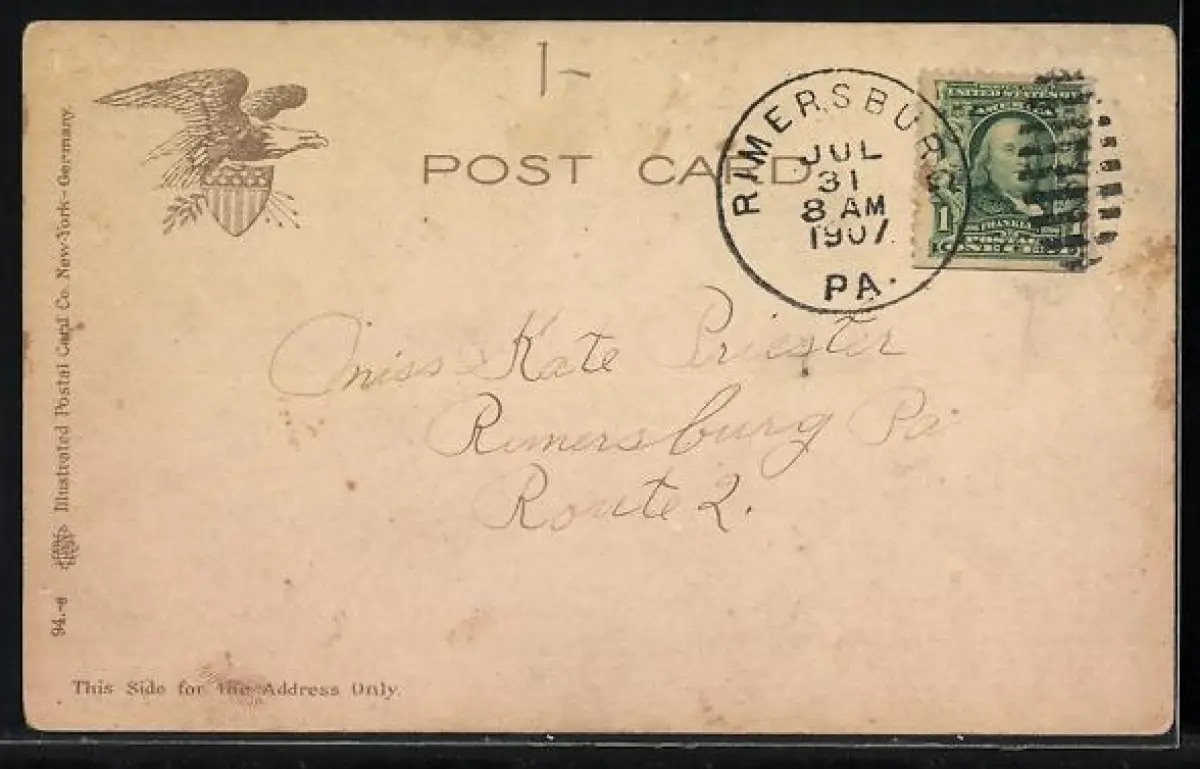 POST CARD
RIMERSBURG
JUL
31
8 AM
1907
PA.
UNITED STATES OF
AMERICA
1
FRANKLIN
ONE CENT
Miss Kate Priester
Rimersburg Pa
Route 2.
94.-6 Illustrated Postal Card Co. New-York-Germany.
This Side for the Address Only.